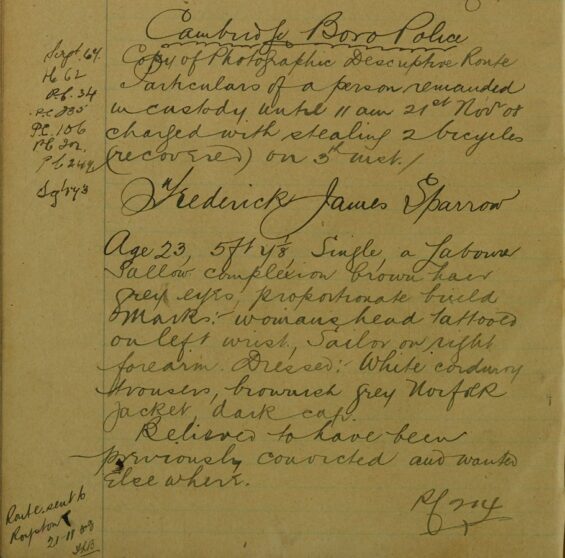 Cambridge Boro Police
Copy of Photographic Descriptive Route
Particulars of a person remanded
in custody until 11 am 21st Nov 08
charged with stealing 2 bicycles
(recovered) on 5th inst./
Frederick James Sparrow
Age 23, 5ft 4⅛, Single, a Labourer
Sallow complexion brown hair
grey eyes, proportionate build
Marks:- womans head tattooed
on left wrist, Sailor on right
forearm. Dressed:- White corduroy
trousers, brownish grey Norfolk
jacket, dark cap.
Believed to have been
previously convicted and wanted
Elsewhere.
Sergt. 64
PC. 34
PC. 106
Route sent to
Royston
21-11-08